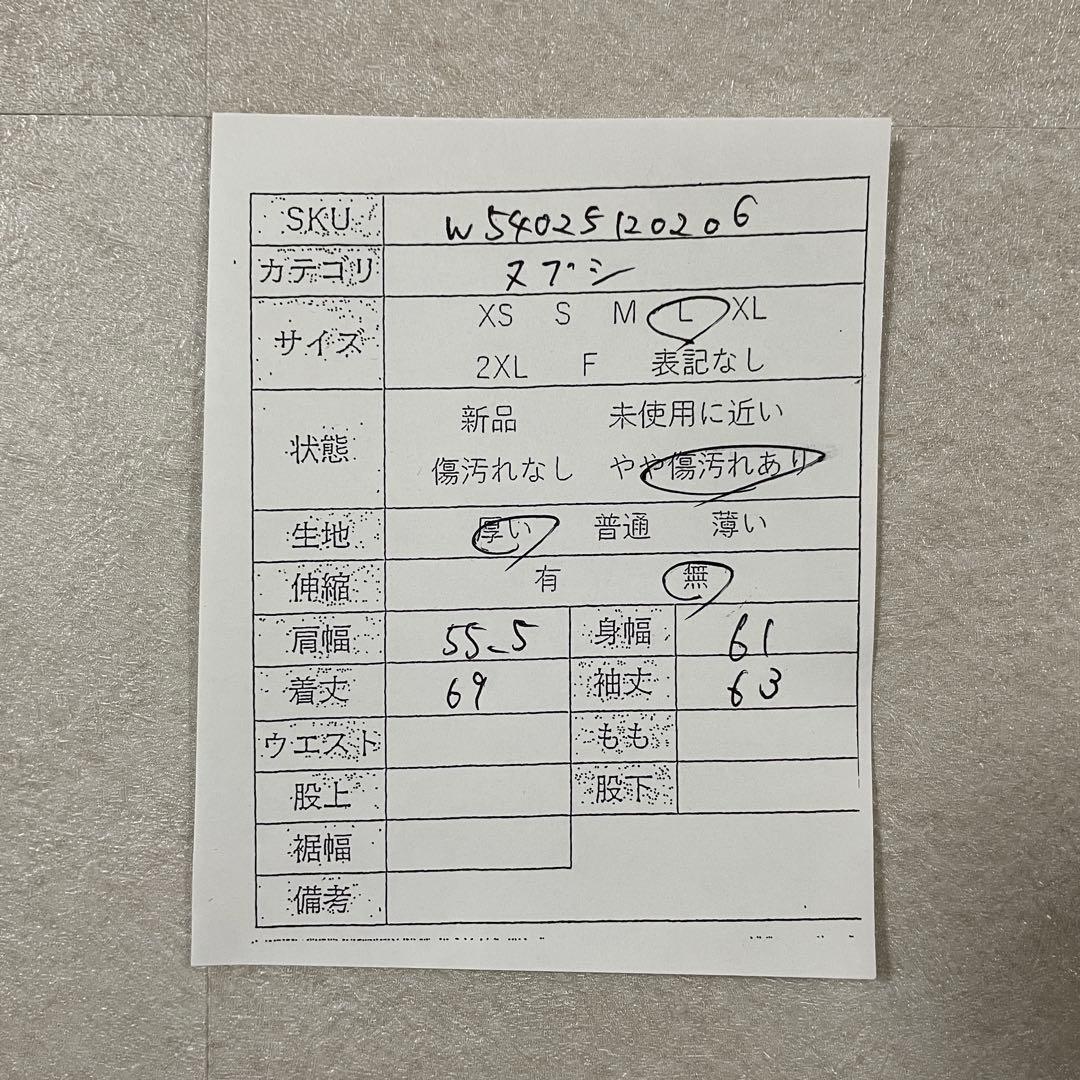 SKU W54025120206
カテゴリ ヌプシ
サイズ XS S M L XL
2XL F 表記なし
状態 新品 未使用に近い
傷汚れなし やや傷汚れあり
生地 厚い 普通 薄い
伸縮 有 無
肩幅 55.5 身幅 61
着丈 69 袖丈 63
ウエスト もも
股上 股下
裾幅
備考